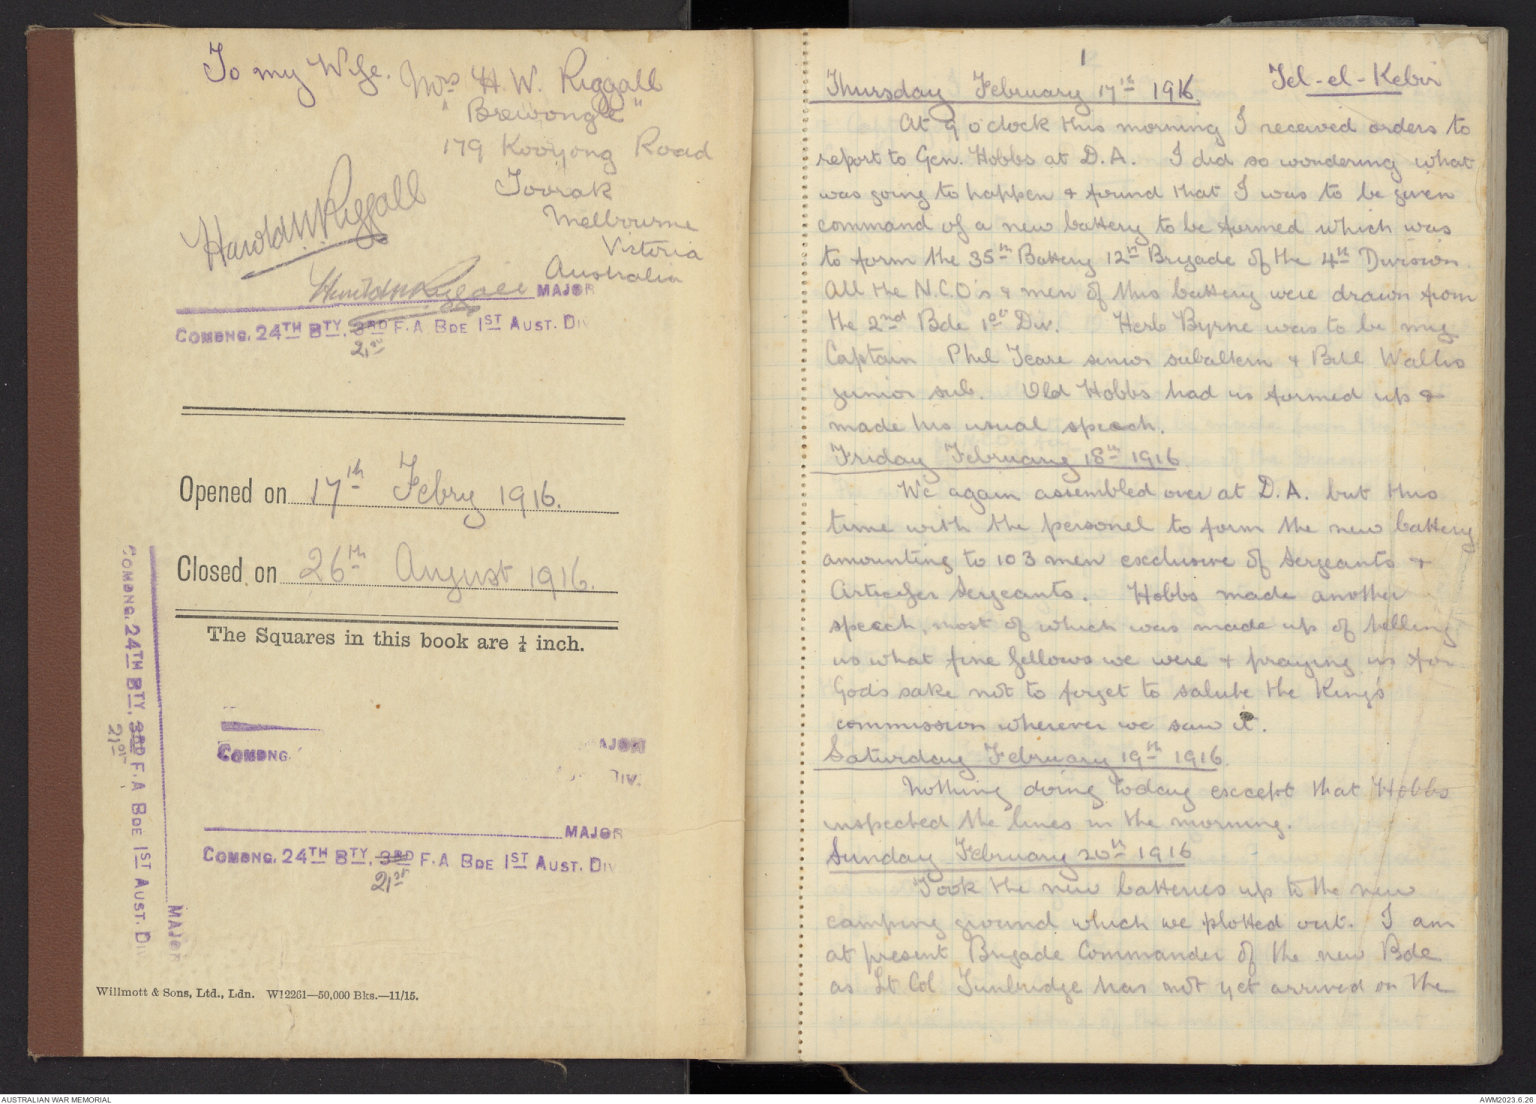 To my Wife.
Mrs H.W. Riggall
"Brewongle"
179 Kooyong Road
Toorak
Melbourne
Victoria
Australia
Harold W Riggall
Harold W Riggall MAJOR
COMDNG. 24TH BTY. 3RD F.A BDE 1ST AUST. DIV
21st
Opened on 17th Febry 1916.
Closed on 26th August 1916.
The Squares in this book are ¼ inch.
COMDNG.
MAJOR
DIV.
MAJOR
COMDNG. 24TH BTY. 3RD F.A BDE 1ST AUST. DIV
21st
MAJOR
COMDNG. 24TH BTY. 3RD F.A BDE 1ST AUST. DI
21st
Willmott & Sons, Ltd., Ldn. W12261—50,000 Bks.—11/15.
1
Thursday February 17th 1916 Tel-el-Kebir
At 9 o'clock this morning I received orders to
report to Gen. Hobbs at D.A. I did so wondering what
was going to happen & found that I was to be given
command of a new battery to be formed which was
to form the 35th Battery 12th Brigade of the 4th Division.
All the N.C.O's & men of this battery were drawn from
the 2nd Bde 1st Div. Herb Byrne was to be my
Captain Phil Teare senior subaltern & Bill Wallis
junior sub. Old Hobbs had us formed up &
made his usual speech.
Friday February 18th 1916
We again assembled over at D.A. but this
time with the personel to form the new battery
amounting to 103 men exclusive of Sergeants &
Artificer Sergeants. Hobbs made another
speech, most of which was made up of telling
us what fine fellows we were & praying us for
God's sake not to forget to salute the King's
commission wherever we saw it.
Saturday February 19th 1916.
Nothing doing today except that Hobbs
inspected the lines in the morning.
Sunday February 20th 1916
Took the new batteries up to the new
camping ground which we plotted out. I am
at present Brigade Commander of the new Bde
as Lt Col Tunbridge has not yet arrived on the
AUSTRALIAN WAR MEMORIAL
AWM2023.6.26